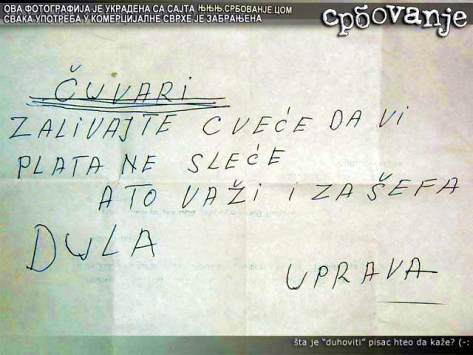 ОВА ФОТОГРАФИЈА ЈЕ УКРАДЕНА СА САЈТА ЊЊЊ.СРБОВАНЈЕ ЦОМ
СВАКА УПОТРЕБА У КОМЕРЦИЈАЛНЕ СВРХЕ ЈЕ ЗАБРАЊЕНА
српбоvanje
ČUVARI
ZALIVAJTE CVEĆE DA VI
PLATA NE SLEĆE
A TO VAŽI I ZA ŠEFA
DULA
UPRAVA
šta je "duhoviti" pisac hteo da kaže? (-: